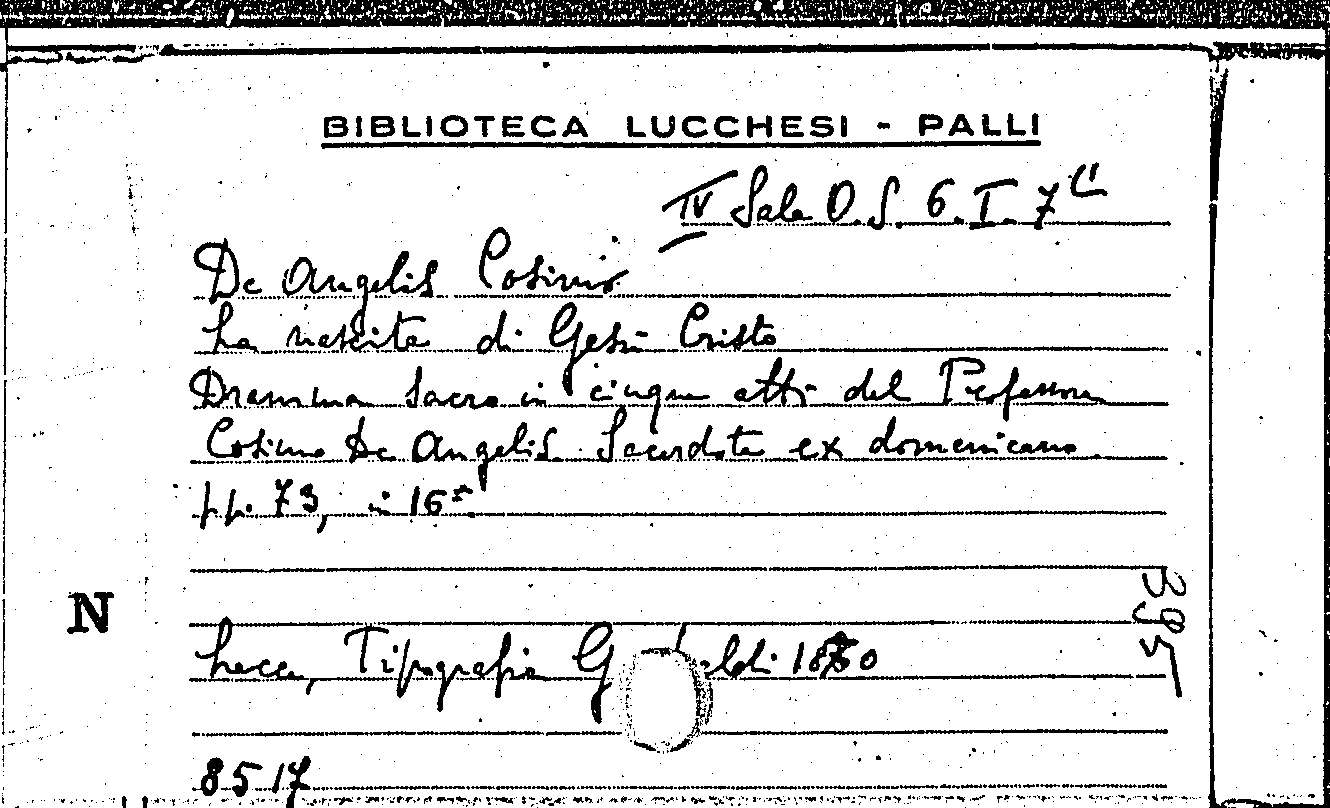 BIBLIOTECA LUCCHESI - PALLI
IV Sala O. S. 6. I. 7
De Angelis Cosimo
La nascita di Gesù Cristo
Dramma sacro in cinque atti del Professore
Cosimo De Angelis Sacerdote ex domenicano
pp. 73, in 16º
N
395
Lecce, Tipografia G
8517